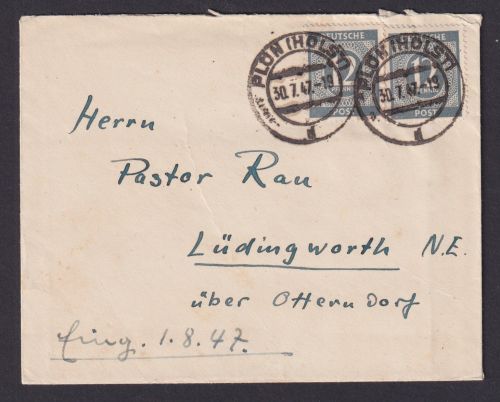 DEUTSCHE
12
PFENNIG
POST
12
PFENNIG
POST
PLÖN (HOLST)
30.7.47.-19
d
PLÖN (HOLST)
30.7.47.-19
d
Herrn
Pastor Rau
Lüdingworth N.E.
über Otterndorf
Eing. 1.8.47.